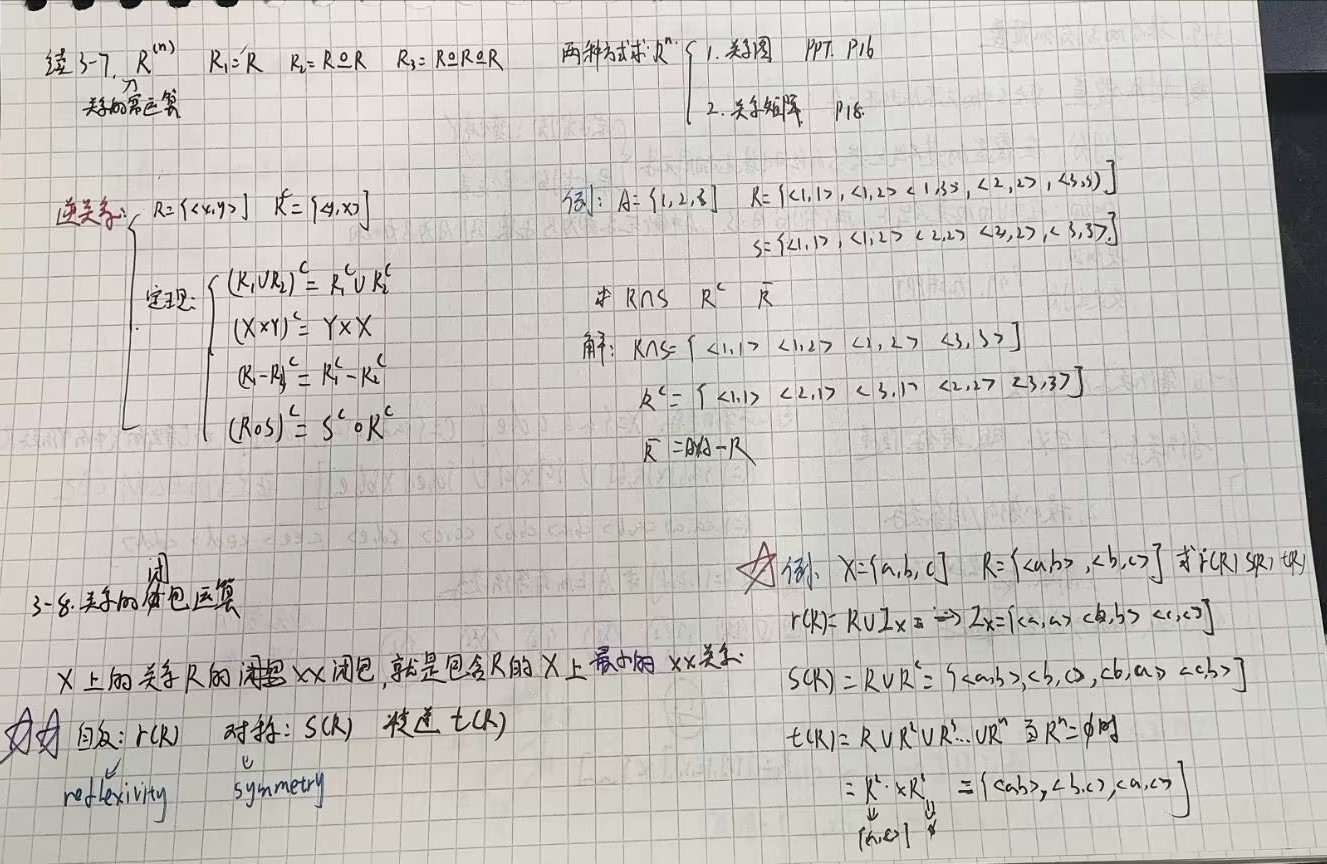 续3-7. R⁽ⁿ⁾ R₁=R R₂=R∘R R₃=R∘R∘R 两种方式求Rⁿ { 1. 关系图 PPT. P16
关系的幂运算
2. 关系矩阵 P18.
逆关系: R={<x,y>} Rᶜ={<y,x>}
定理: (R₁∪R₂)ᶜ=R₁ᶜ∪R₂ᶜ
(X×Y)ᶜ=Y×X
(R₁-R₂)ᶜ=R₁ᶜ-R₂ᶜ
(R∘S)ᶜ=Sᶜ∘Rᶜ
例: A={1,2,3} R={<1,1>,<1,2><1,3>,<2,2>,<3,3>}
S={<1,1>,<1,2><2,2><2,2>,<3,3>}
求 R∩S Rᶜ R̄
解: R∩S={<1,1><1,2><2,2><3,3>}
Rᶜ={<1,1><2,1><3,1><2,2><3,3>}
R̄=A×A-R
3-8. 关系的闭包运算
X上的关系R的xx闭包,就是包含R的X上最小的xx关系.
自反: r(R) 对称: S(R) 传递 t(R)
reflexivity symmetry
例. X={a,b,c} R={<a,b>,<b,c>} 求r(R) S(R) t(R)
r(R)=R∪Iₓ ⇒ Iₓ={<a,a><b,b><c,c>}
S(R)=R∪Rᶜ={<a,b>,<b,c>,<b,a><c,b>}
t(R)=R∪R²∪R³…∪Rⁿ 至Rⁿ=∅时
={<a,b>,<b,c>,<a,c>}